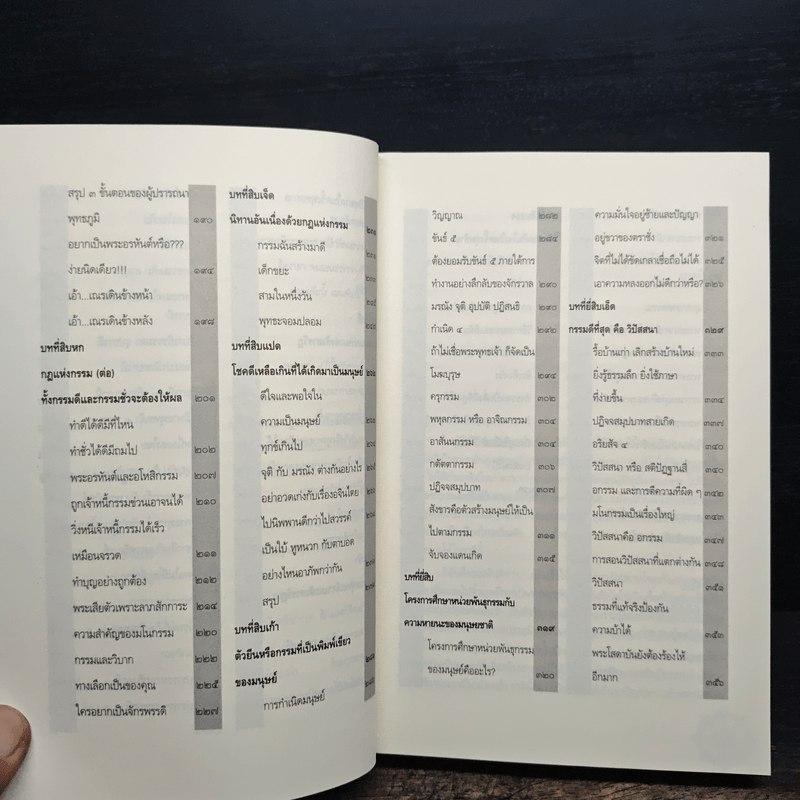 สรุป ๓ ขั้นตอนของผู้ปรารถนา
พุทธภูมิ ๑๙๐
อยากเป็นพระอรหันต์หรือ???
ง่ายนิดเดียว!!! ๑๙๔
เอ้า...เณรเดินข้างหน้า
เอ้า...เณรเดินข้างหลัง ๑๙๘
บทที่สิบหก
กฎแห่งกรรม (ต่อ)
ทั้งกรรมดีและกรรมชั่วจะต้องให้ผล ๒๐๑
ทำดีได้ดีมีที่ไหน
ทำชั่วได้ดีมีถมไป ๒๐๒
พระอรหันต์และอโหสิกรรม ๒๐๗
ถูกเจ้าหนี้กรรมช่วนเอาจนได้ ๒๑๐
วิ่งหนีเจ้าหนี้กรรมได้เร็ว
เหมือนจรวด ๒๑๑
ทำบุญอย่างถูกต้อง ๒๑๒
พระเสียตัวเพราะลาภสักการะ ๒๑๔
ความสำคัญของมโนกรรม ๒๒๐
กรรมและวิบาก ๒๒๒
ทางเลือกเป็นของคุณ ๒๒๕
ใครอยากเป็นจักรพรรดิ ๒๒๗
บทที่สิบเจ็ด
นิทานอันเนื่องด้วยกฎแห่งกรรม
กรรมฉันสร้างมาดี
เด็กขยะ
สามในหนึ่งวัน
พุทธะจอมปลอม
บทที่สิบแปด
โชคดีเหลือเกินที่ได้เกิดมาเป็นมนุษย์
ดีใจและพอใจใน
ความเป็นมนุษย์
ทุกข์เกินไป
จุติ กับ มรณัง ต่างกันอย่างไร
อย่าอวดเก่งกับเรื่องอจินไตย
ไปนิพพานดีกว่าไปสวรรค์
เป็นใบ้ หูหนวก กับตาบอด
อย่างไหนอาภัพกว่ากัน
สรุป
บทที่สิบเก้า
ตัวยีนหรือกรรมที่เป็นพิมพ์เขียว
ของมนุษย์
การกำเนิดมนุษย์
วิญญาณ ๒๘๒
ขันธ์ ๕ ๒๘๔
ต้องยอมรับขันธ์ ๕ ภายใต้การ
ทำงานอย่างลึกลับของจักรวาล ๒๙๐
มรณัง จุติ อุปบัติ ปฏิสนธิ ๒๙๐
กำเนิด ๔ ๒๙๒
ถ้าไม่เชื่อพระพุทธเจ้า ก็จัดเป็น
โมฆบุรุษ ๒๙๔
ครุกรรม ๓๐๒
พหุลกรรม หรือ อาจิณกรรม ๓๐๔
อาสันนกรรม ๓๐๔
กตัตตากรรม ๓๐๖
ปฏิจจสมุปบาท ๓๐๗
สังขารคือตัวสร้างมนุษย์ให้เป็น
ไปตามกรรม ๓๑๑
จับจองแดนเกิด ๓๑๕
บทที่ยี่สิบ
โครงการศึกษาหน่วยพันธุกรรมกับ
ความหายนะของมนุษยชาติ ๓๑๙
โครงการศึกษาหน่วยพันธุกรรม
ของมนุษย์คืออะไร? ๓๒๐
ความมั่นใจอยู่ซ้ายและปัญญา
อยู่ขวาของตราชั่ง ๓๒๑
จิตที่ไม่ได้ขัดเกลาเชื่อถือไม่ได้ ๓๒๕
เอาความหลงออกไม่ดีกว่าหรือ? ๓๒๖
บทที่ยี่สิบเอ็ด
กรรมดีที่สุด คือ วิปัสสนา ๓๒๙
รื้อบ้านเก่า เลิกสร้างบ้านใหม่ ๓๓๓
ยิ่งรู้ธรรมลึก ยิ่งใช้ภาษา
ที่ง่ายขึ้น ๓๓๔
ปฏิจจสมุปบาทสายเกิด ๓๓๗
อริยสัจ ๔
วิปัสสนา หรือ สติปัฏฐานสี่ ๓๔๐
อกรรม และการตีความที่ผิด ๆ ๓๔๒
มโนกรรมเป็นเรื่องใหญ่ ๓๔๓
วิปัสสนาคือ อกรรม ๓๔๗
การสอนวิปัสสนาที่แตกต่างกัน ๓๔๘
วิปัสสนา ๓๕๑
ธรรมที่แท้จริงป้องกัน
ความบ้าได้ ๓๕๓
พระโสดาบันยังต้องร้องไห้
อีกมาก ๓๕๖